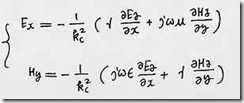 Ex = - 1/kc² ( γ ∂Ez/∂x + jωμ ∂Hz/∂y )
Hy = - 1/kc² ( jωε ∂Ez/∂x + γ ∂Hz/∂y )